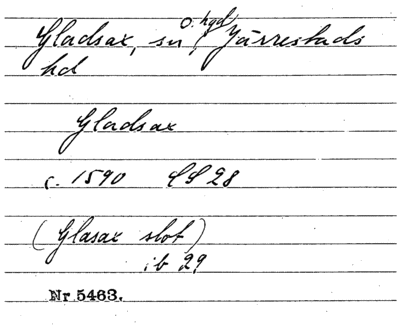 Gladsax, sn o. hgd, Järrestads
hd
Gladsax
c. 1590 SS 28
(Glasax slot)
ib 29
Nr 5463.